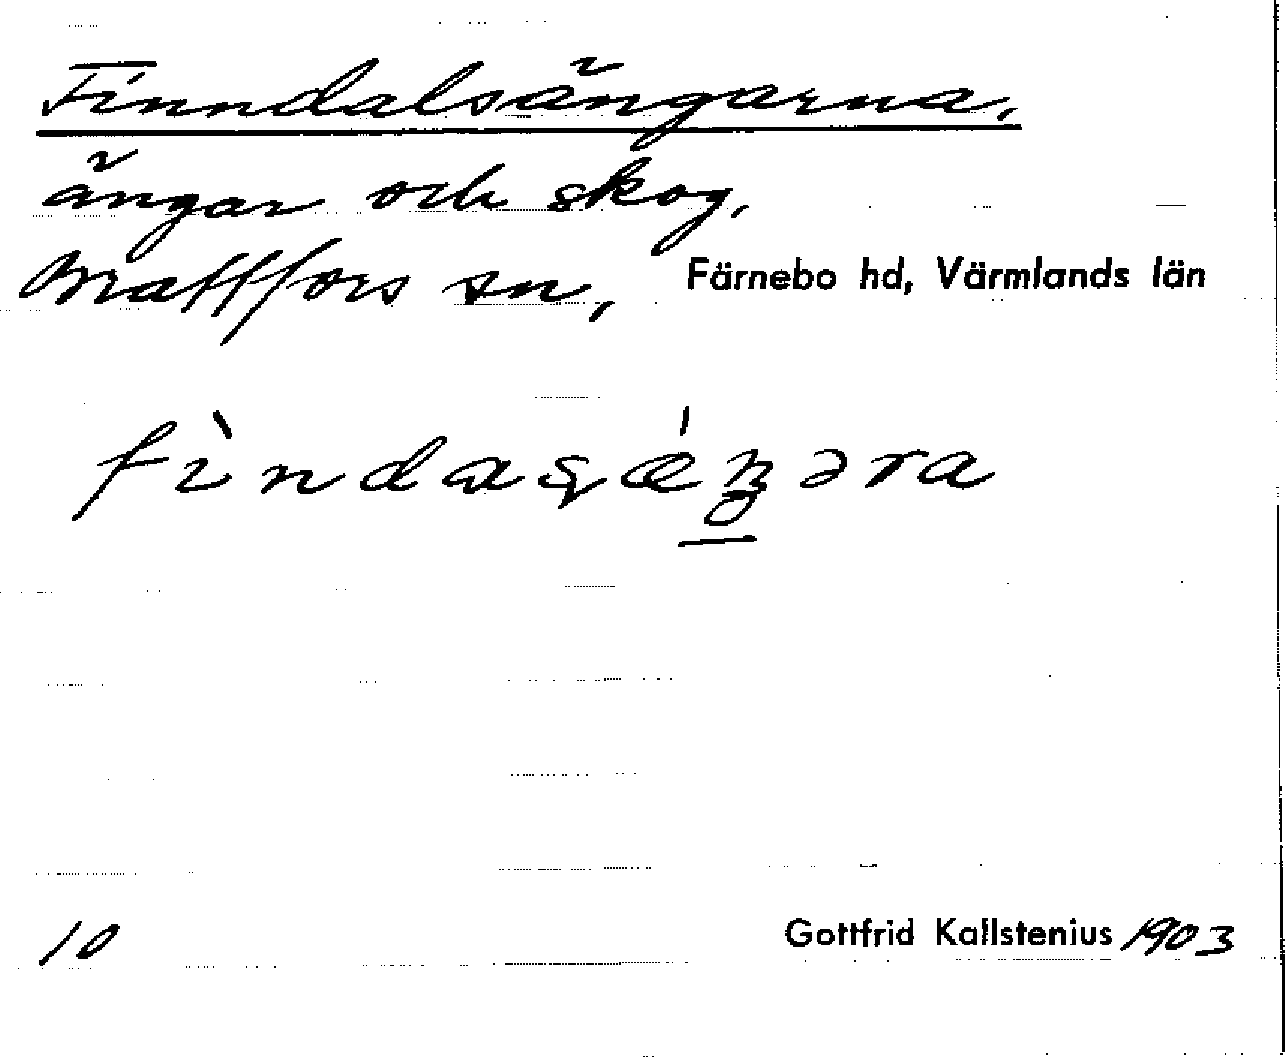 Finndalsängarna.
ängar och skog.
Brattfors sn, Färnebo hd, Värmlands län
fìndasǽŋəra
10 Gottfrid Kallstenius 1903